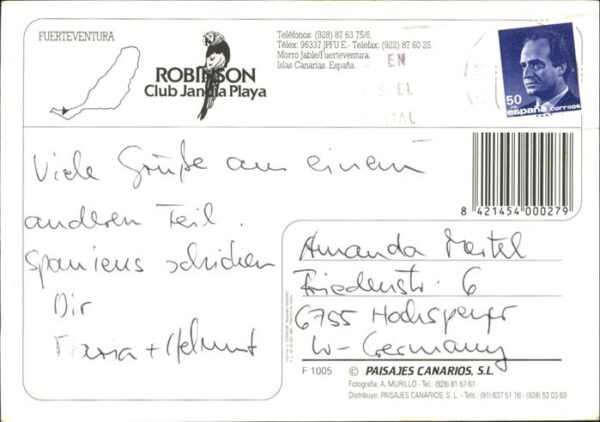 FUERTEVENTURA
ROBINSON
Club Jandia Playa
Teléfonos: (928) 87 63 75/6.
Télex: 96337 JPFU E.- Telefax: (922) 87 60 25.
Morro Jable/Fuerteventura.
Islas Canarias. España.
EN
EL
50
PTA
españa correos
8 421454 000279
Viele Grüße aus einem
anderen Teil
Spaniens schicken
Dir
+ Helmut
Amanda
Friedenstr. 6
6755 Hochspeyer
W-Germany
F 1005 © PAISAJES CANARIOS, S.L.
Fotografía: A. MURILLO - Tel.: (928) 81 57 61
Distribuye: PAISAJES CANARIOS, S. L. - Tels.: (91) 637 51 16 - (928) 53 03 69